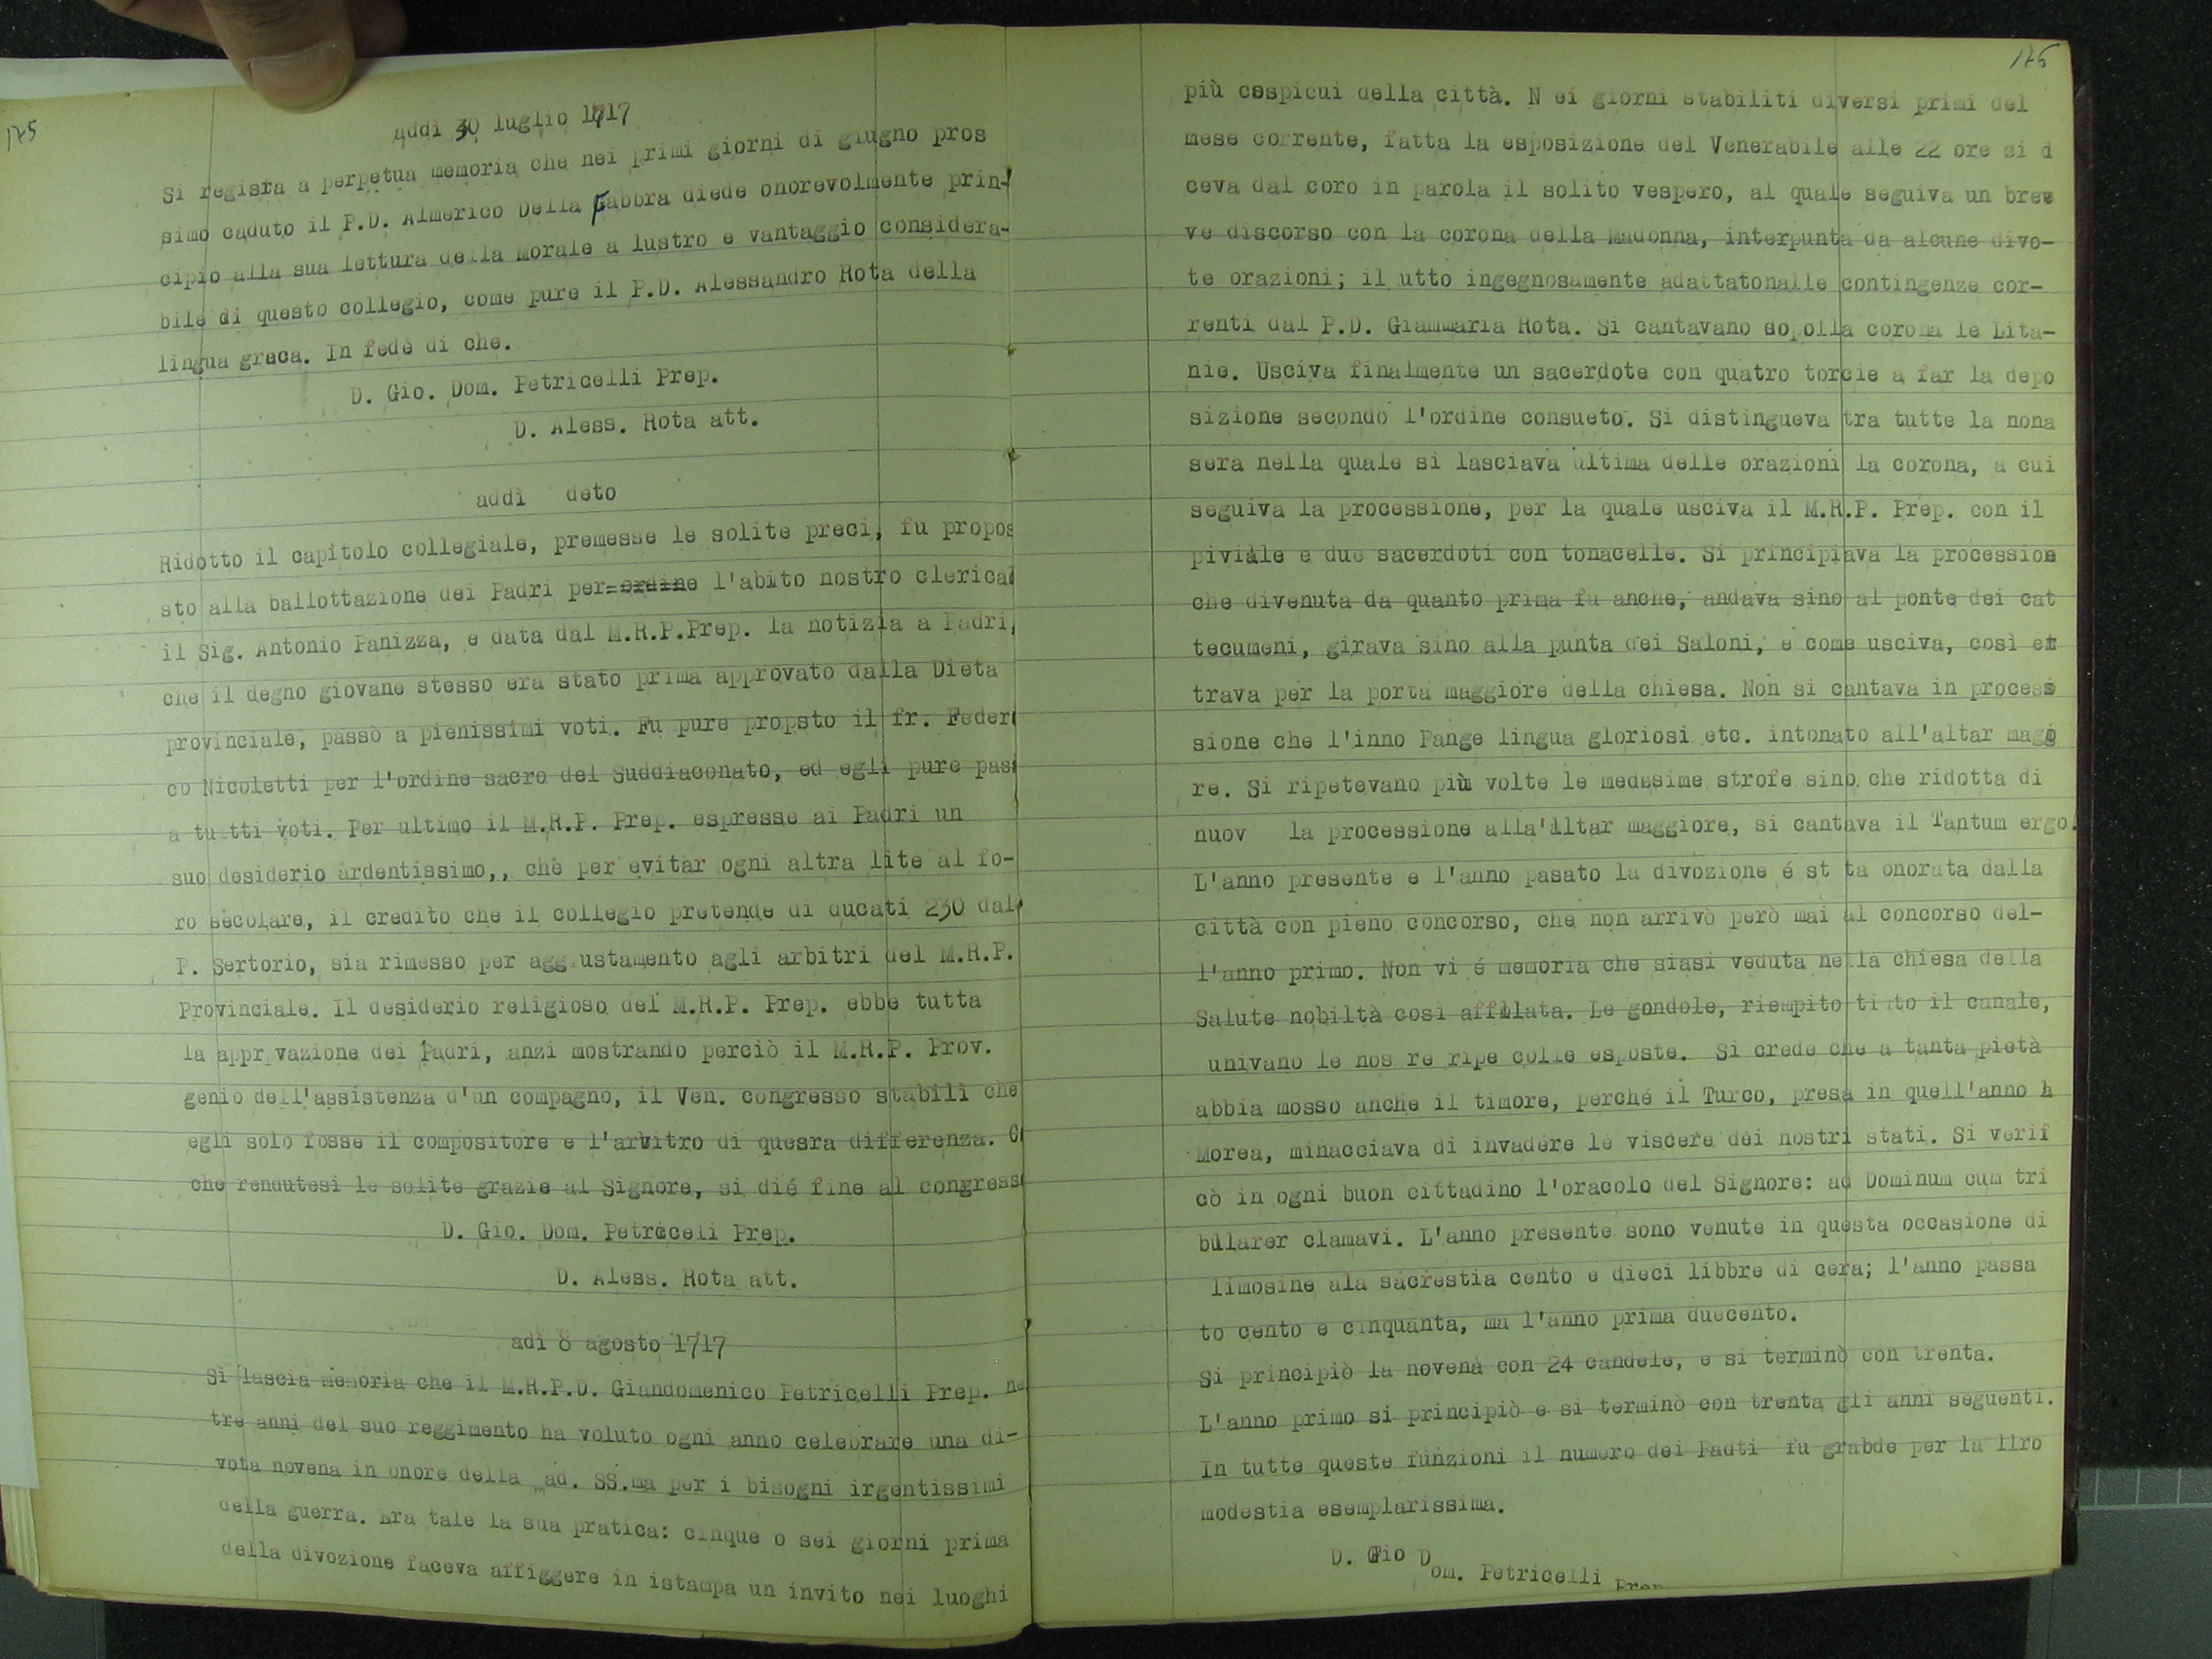 175
addì 30 luglio 1717
Si registra a perpetua memoria che nei primi giorni di giugno pros
simo caduto il P.D. Almerico Della Fabbra diede onorevolmente prin-
cipio alla sua lettura della Morale a lustro e vantaggio considera-
bile di questo collegio, come pure il P.D. Alessandro Rota della
lingua greca. In fede di che.
D. Gio. Dom. Petricelli Prep.
D. Aless. Rota att.
addì deto
Ridotto il capitolo collegiale, premesse le solite preci, fu propos
sto alla ballottazione dei Padri per=ordine l'abito nostro clerical
il Sig. Antonio Panizza, e data dal M.R.P.Prep. la notizia a Padri,
che il degno giovane stesso era stato prima approvato dalla Dieta
provinciale, passò a pienissimi voti. Fu pure propsto il fr. Feder
co Nicoletti per l'ordine sacro del Suddiaconato, ed egli pure pas
a tutti voti. Per ultimo il M.R.P. Prep. espresse ai Padri un
suo desiderio ardentissimo,, che per evitar ogni altra lite al fo-
ro secolare, il credito che il collegio pretende di ducati 230 dal
P. Sertorio, sia rimesso per aggiustamento agli arbitri del M.R.P.
Provinciale. Il desiderio religioso del M.R.P. Prep. ebbe tutta
la appr vazione dei Padri, anzi mostrando perciò il M.R.P. Prov.
genio dell'assistenza d'un compagno, il Ven. congresso stabilì che
egli solo fosse il compositore e l'arbitro di quesra differenza.
che rendutesi le solite grazie al Signore, si dié fine al congress
D. Gio. Dom. Petriceli Prep.
D. Aless. Rota att.
adì 8 agosto 1717
Si lascia memoria che il M.R.P.D. Giandomenico Petricelli Prep. ne
tre anni del suo reggimento ha voluto ogni anno celebrare una di-
vota novena in onore della mad. SS.ma per i bisogni irgentissimi
della guerra. Era tale la sua pratica: cinque o sei giorni prima
della divozione faceva affiggere in istampa un invito nei luoghi
176
più cospicui della città. N ei giorni stabiliti diversi primi del
mese corrente, fatta la esposizione del Venerabile alle 22 ore si d
ceva dal coro in parola il solito vespero, al quale seguiva un brev
ve discorso con la corona della Madonna, interpunta da alcune divo-
te orazioni; il utto ingegnosamente adattatonalle contingenze cor-
renti dal P.D. Giammaria Rota. Si cantavano dopolla corona le Lita-
nie. Usciva finalmente un sacerdote con quatro torcie a far la depo
sizione secondo l'ordine consueto. Si distingueva tra tutte la nona
sera nella quale si lasciava ultima delle orazioni la corona, a cui
seguiva la processione, per la quale usciva il M.R.P. Prep. con il
piviale e due sacerdoti con tonacelle. Si principiava la procession
che divenuta da quanto prima fu anche, andava sino al ponte dei cat
tecumeni, girava sino alla punta dei Saloni, e come usciva, così et
trava per la porta maggiore della chiesa. Non si cantava in process
sione che l'inno Pange lingua gloriosi etc. intonato all'altar magg
re. Si ripetevano più volte le medesime strofe sino che ridotta di
nuov la processione alla'Altar maggiore, si cantava il Tantum ergo.
L'anno presente e l'anno pasato la divozione é st ta onorata dalla
città con pieno concorso, che non arrivò però mai al concorso del-
l'anno primo. Non vi é memoria che siasi veduta nella chiesa della
Salute nobiltà così affllata. Le gondole, riempito tutto il canale,
univano le nos re ripe colle esposte. Si crede che a tanta pietà
abbia mosso anche il timore, perché il Turco, presa in quell'anno
Morea, minacciava di invadere le viscere dei nostri stati. Si verif
cò in ogni buon cittadino l'oracolo del Signore: ad Dominum cum tri
bularer clamavi. L'anno presente sono venute in questa occasione di
limosine ala sacrestia cento e dieci libbre di cera; l'anno passa
to cento e cinquanta, ma l'anno prima duecento.
Si principiò la novena con 24 candele, e si terminò con trenta.
L'anno primo si principiò e si terminò con trenta gli anni seguenti.
In tutte queste funzioni il numero dei Padti fu grabde per la llro
modestia esemplarissima.
D. Gio Dom. Petricelli Prep